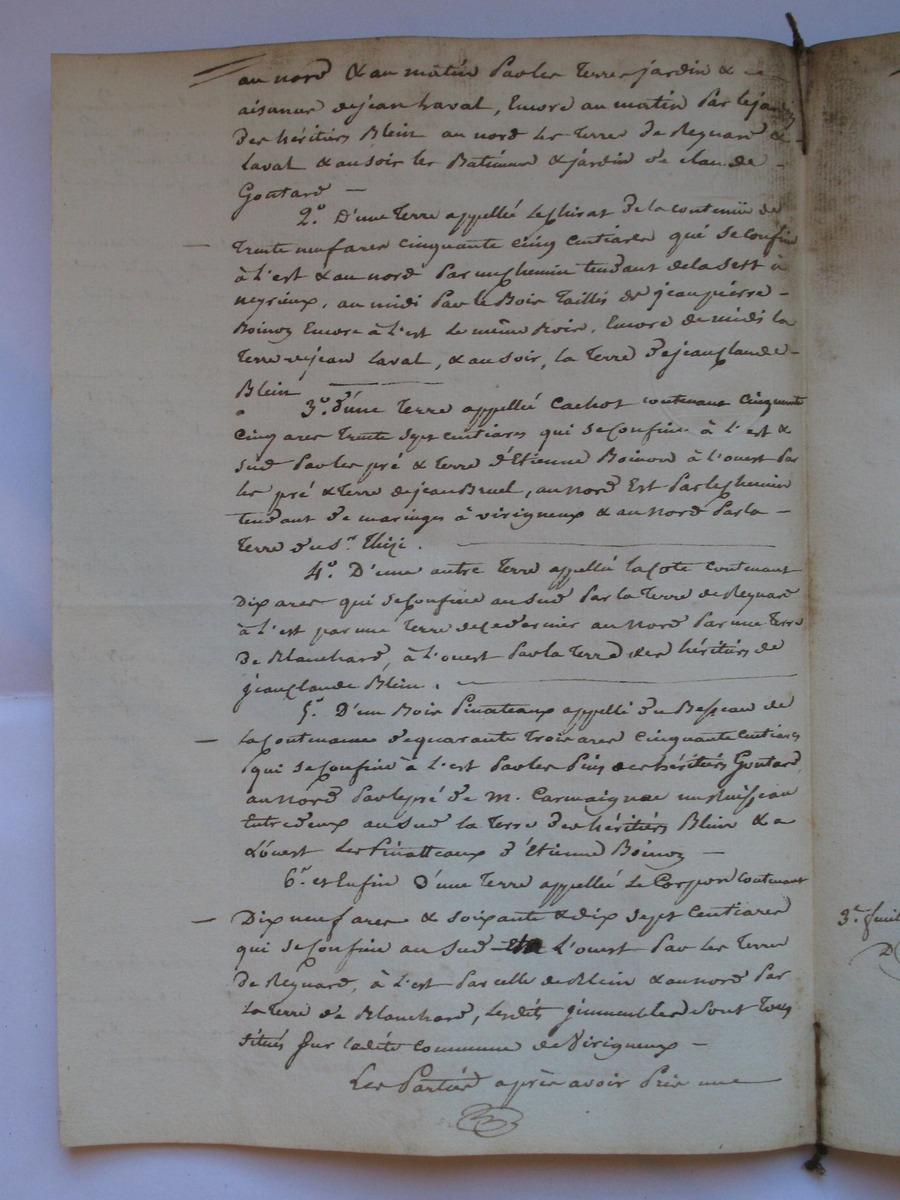 au nord & au matin Par les Terres jardin &
aisance de jean Laval, Encore au matin Par le jardin
des héritiers Blein au nord les Terres de Reynard &
Laval & au soir les Batimens & jardin de Claude
Goutard —
2.° D'une Terre appellée Le Chirat de la contenue de
Trente neuf ares cinquante cinq centiares qui se confine
à l'est & au nord Par un chemin tendant de la à
neyrieux, au midi Par le Bois Taillis de jean pierre
Boinon Encore à l'est le même Bois, Encore de midi la
Terre de jean Laval, & au soir, la Terre de jean Claude
Blein
3.° d'une Terre appellée Cachot contenant Cinquante
Cinq ares Trente sept centiares qui se confine à l'est &
sud Par les pré & Terre d'Etienne Boinon à l'ouest Par
les pré & Terre de jean Bruel, au nord Est Par le chemin
tendant de maringes à virigneux & au nord Par la
Terre du s.r Thizi.
4.° D'une autre Terre appellée la Cote contenant
Dix ares qui se confine au sud Par la Terre de Reynard
à l'est par une Terre de ce dernier au nord Par une Terre
de Blanchard, à l'ouest Par la Terre des héritiers de
jean Claude Blein.
5.° D'un Bois Pinateaux appellé du Besseau de
La Contenance de quarante Trois ares cinquante centiares
qui se confine à l'est Par les Pins des héritiers Goutard,
au nord Par le pré de M. Carmaignac un Ruisseau
Entre deux au sud la Terre des héritiers Blein & a
L'ouest Les Pinatteaux d'Etienne Boinon —
6.° et Enfin d'une Terre appellée Le Corpon contenant
Dix neuf ares & soixante & dix sept Centiares
qui se confine au sud L'ouest Par les Terres
de Reynard, à l'est Par celle de Blein & au nord Par
La Terre de Blanchard, lesdits jmmeubles sont Tous
situés sur ladite commune de Virigneux —
Les Parties après avoir Pris une
3.e feuil